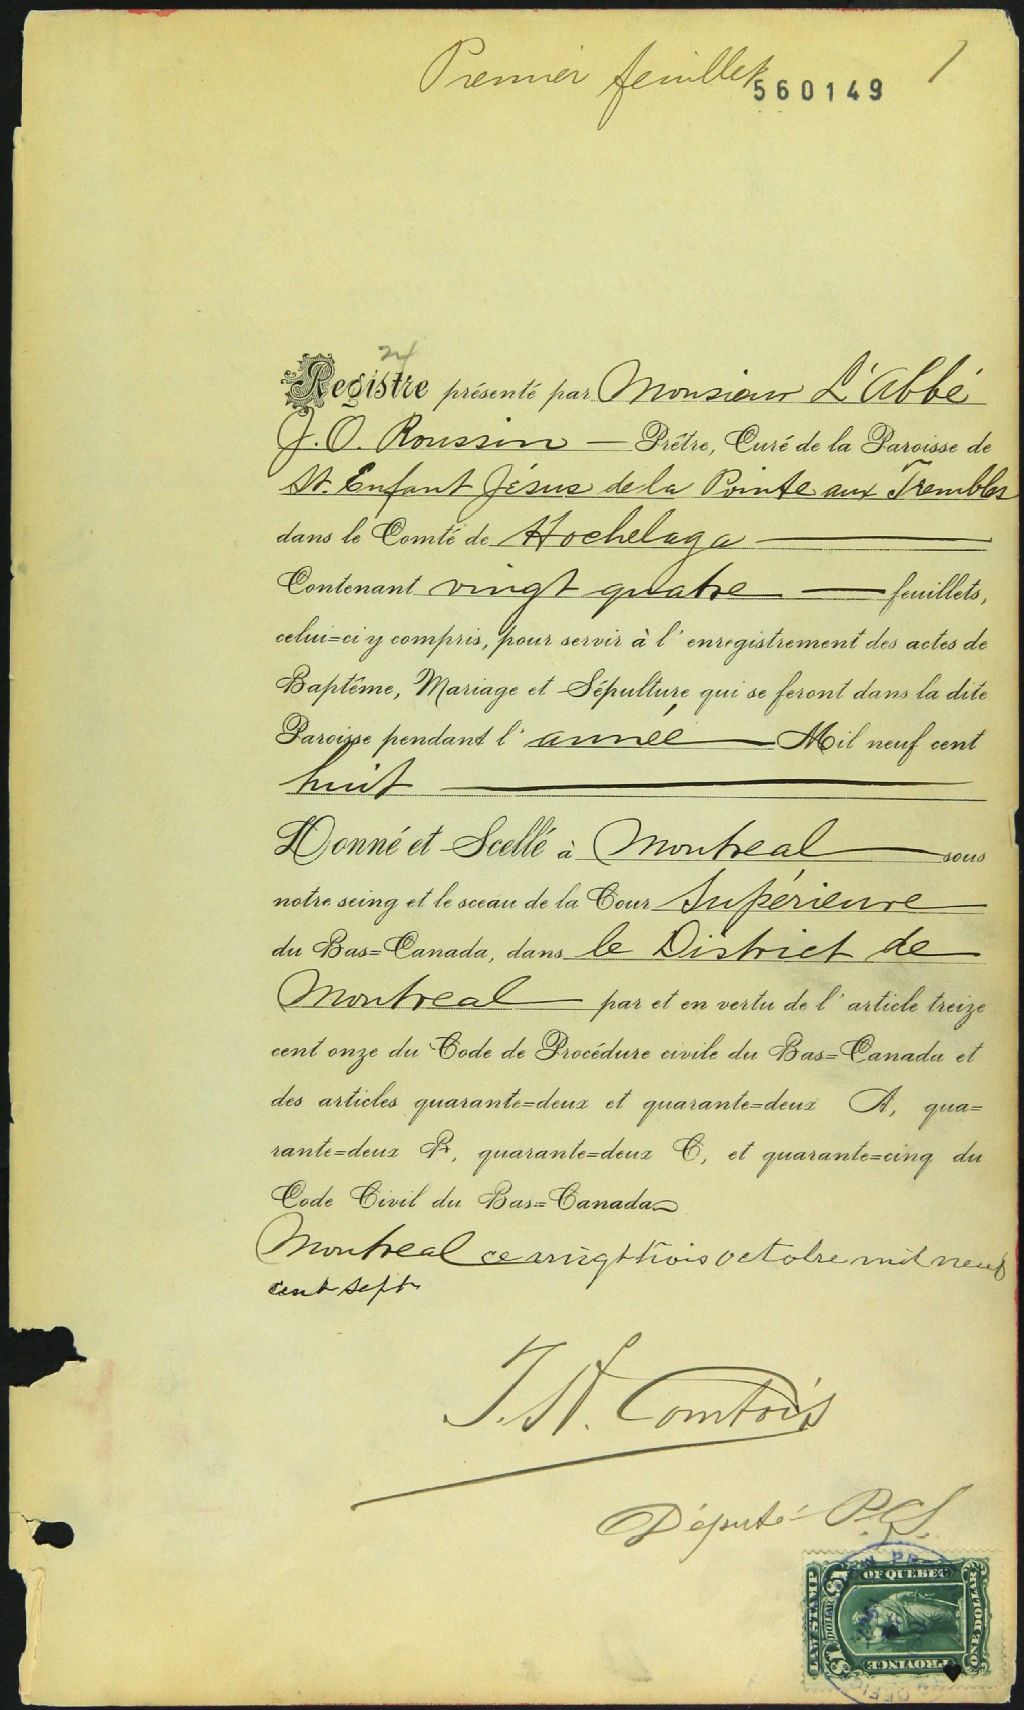 Premier feuillet 1
560149
24
Registre présenté par Monsieur L'Abbé
J. O. Roussin — Prêtre, Curé de la Paroisse de
St. Enfant Jésus de la Pointe aux Trembles
dans le Comté de Hochelaga —
Contenant vingt quatre — feuillets,
celui=ci y compris, pour servir à l'enregistrement des actes de
Baptême, Mariage et Sépulture, qui se feront dans la dite
Paroisse pendant l'année — Mil neuf cent
huit —
Donné et Scellé à Montreal — sous
notre seing et le sceau de la Cour Supérieure
du Bas=Canada, dans le District de
Montreal — par et en vertu de l'article treize
cent onze du Code de Procédure civile du Bas=Canada et
des articles quarante=deux et quarante=deux A, qua=
rante=deux B, quarante=deux C, et quarante=cinq du
Code Civil du Bas=Canada
Montreal ce vingt trois octobre mil neuf
cent sept
Comtois
Député P.C.S.
LAW STAMP
OF QUEBEC
ONE DOLLAR
PROVINCE
$1 DOLLAR